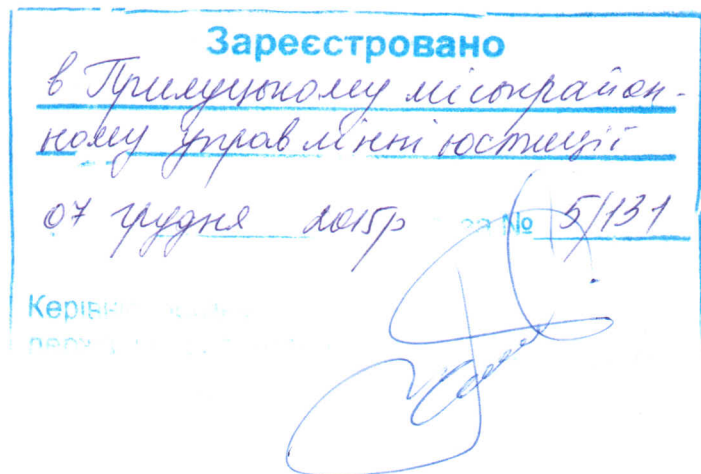 Зареєстровано
в Прилуцькому міськрайон-
ному управлінні юстиції
07 грудня 2015р за № 5/131